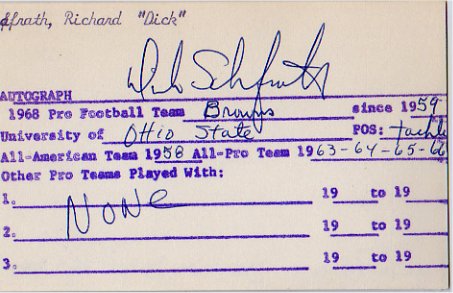 ffrath, Richard "Dick"
Dick Schafrath
AUTOGRAPH
1968 Pro Football Team Browns since 1959
University of Ohio State POS: tackle
All-American Team 1958 All-Pro Team 1963-64-65-66
Other Pro Teams Played With:
1. NONE 19 to 19
2. 19 to 19
3. 19 to 19